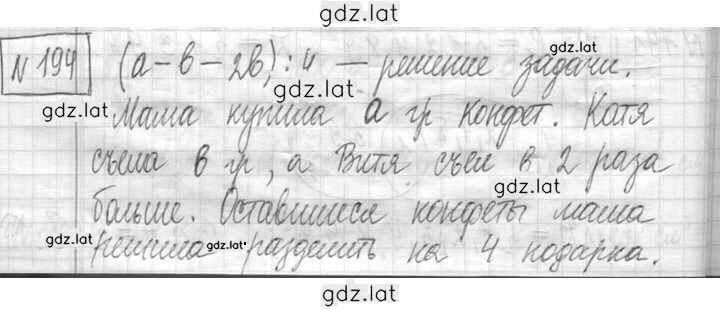 gdz.lat
№ 194 (а-в-2в):4 — решение задачи.
gdz.lat
gdz.lat
gdz.lat
Мама купила а гр конфет. Катя
съела в гр, а Витя съел в 2 раза
gdz.lat
больше. Оставшиеся конфеты мама
gdz.lat
gdz.lat
решила разделить на 4 подарка.
gdz.lat